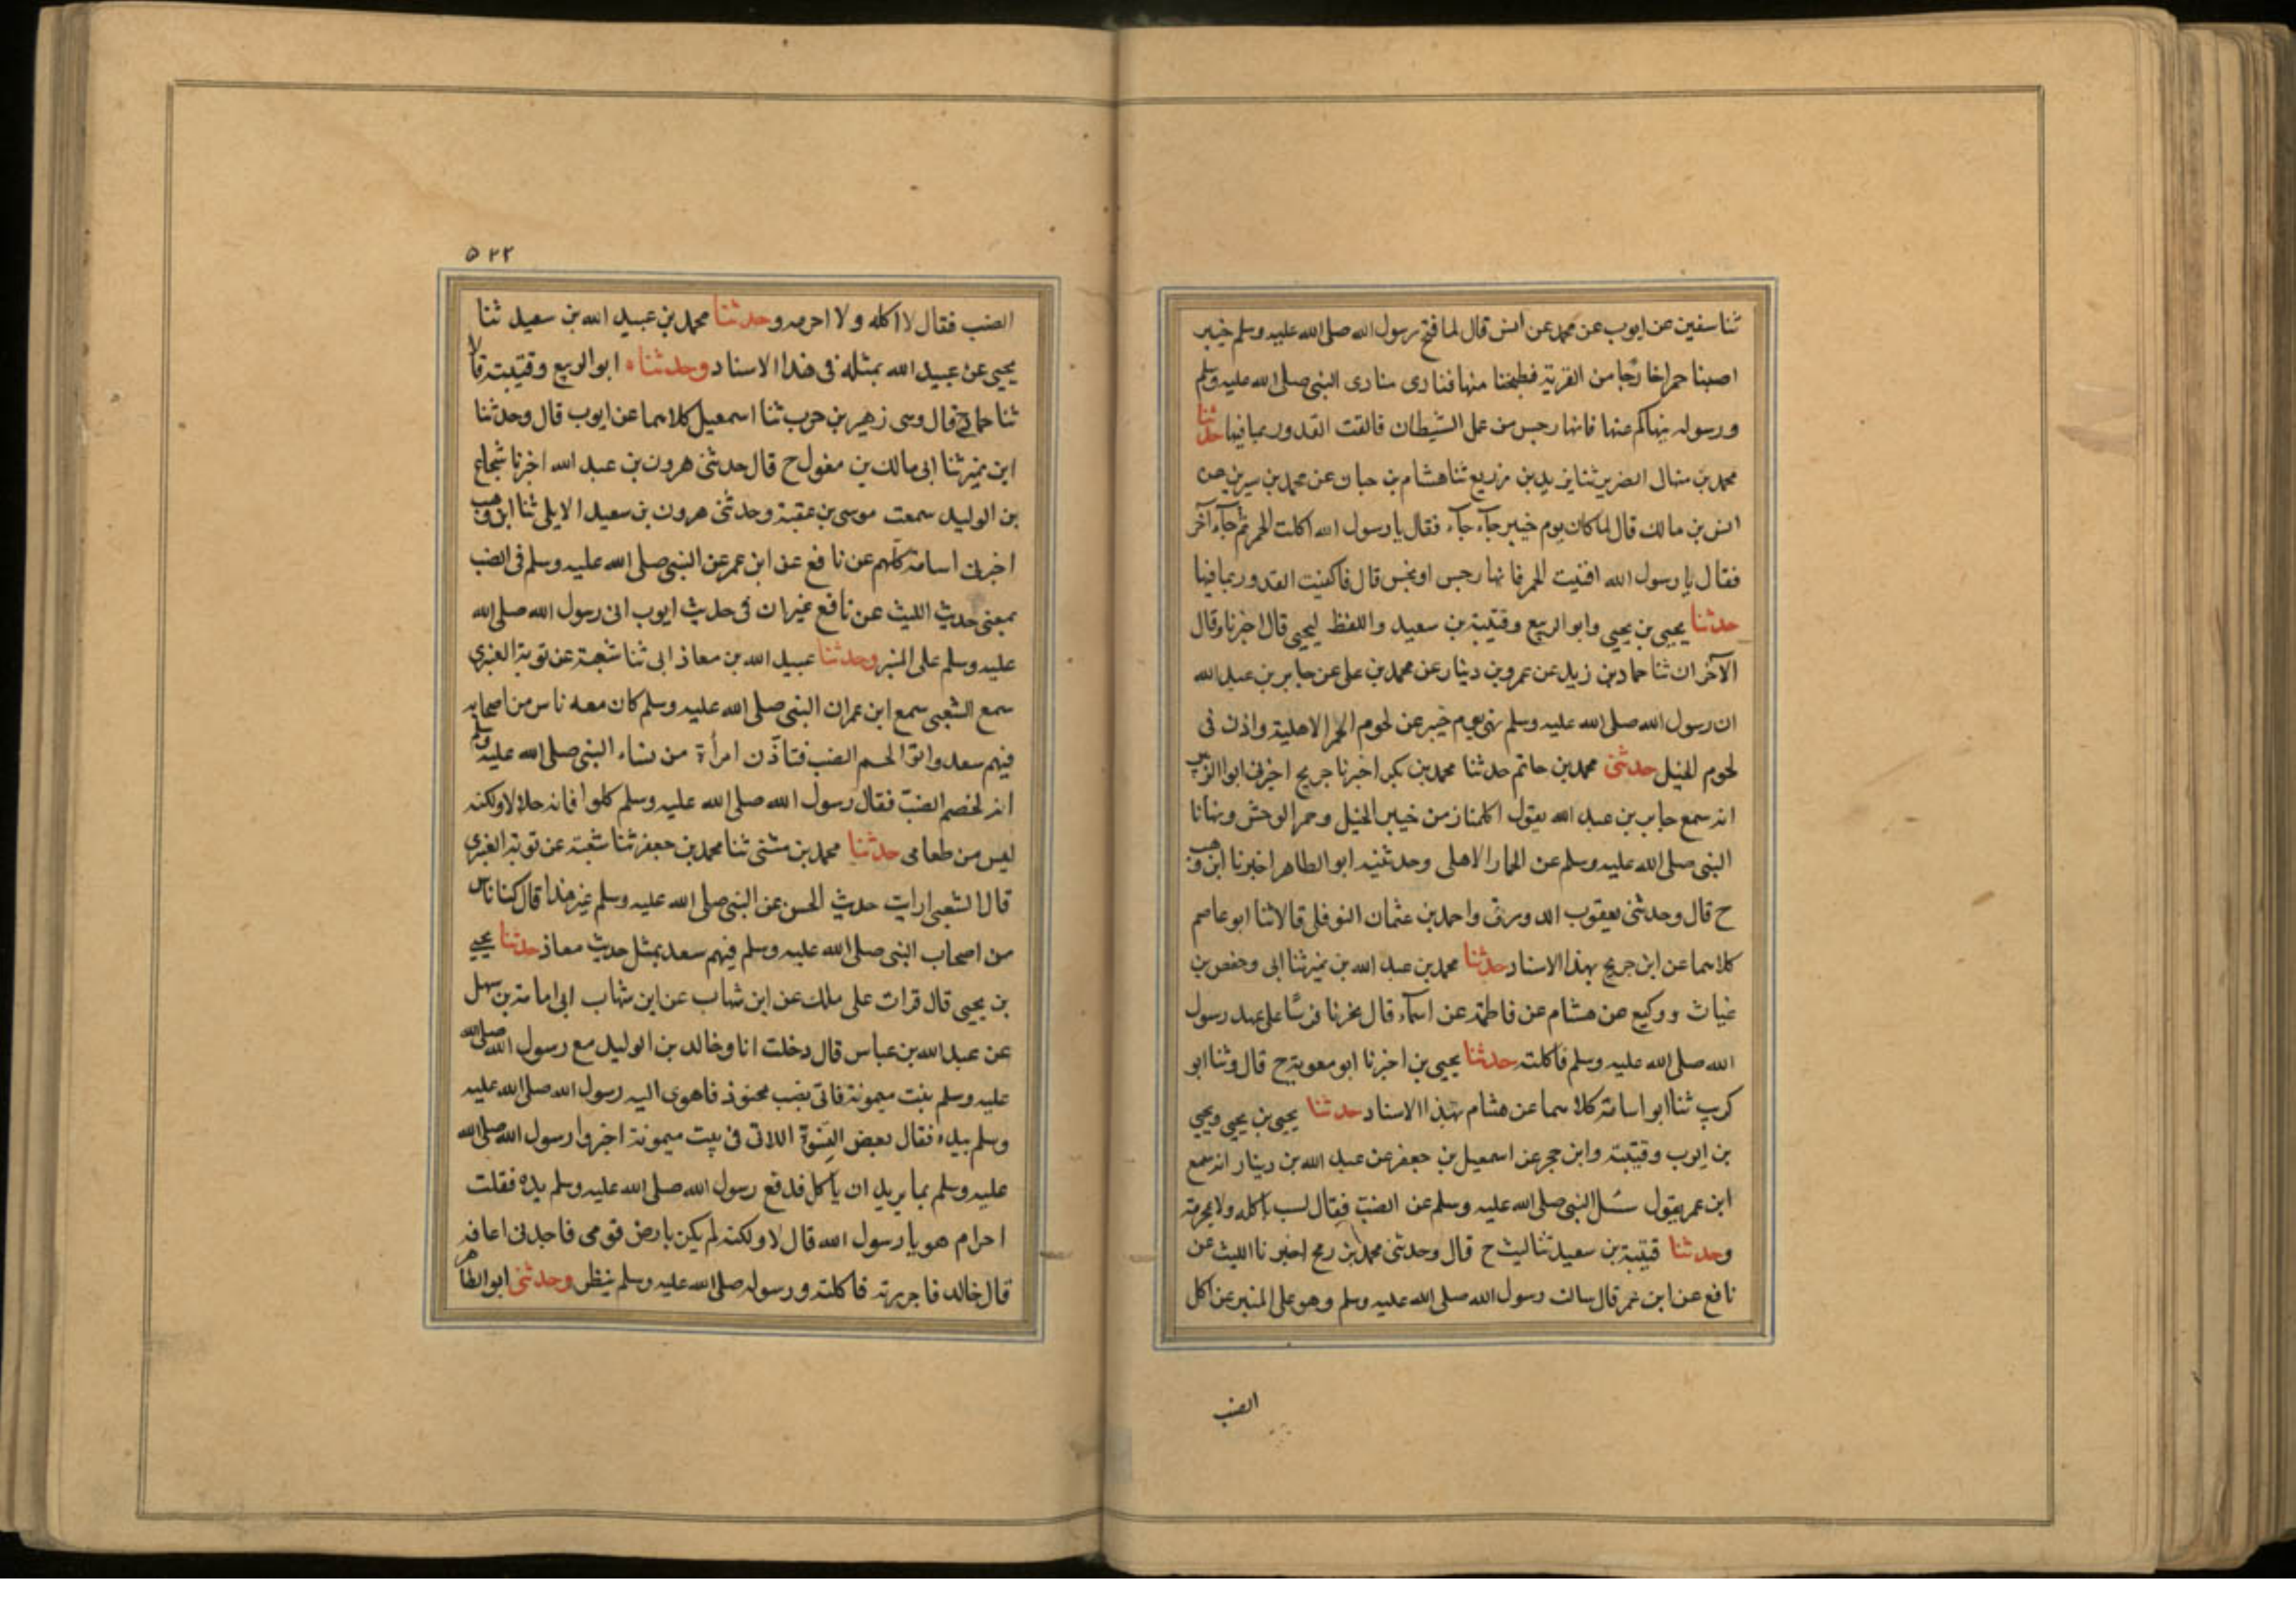 ثنا سفين عن ايوب عن محمد عن انس قال لما فتح رسول الله صلى الله عليه وسلم خيبر
اصبنا حمرا خارجا من القرية فطبخنا منها فنادى منادى النبي صلى الله عليه وسلم
ورسوله ينهاكم عنها فانها رجس من عمل الشيطان فالقت القدور بما فيها حدثنا
محمد بن منهال الضرير ثنا يزيد بن زريع ثنا هشام بن حبان عن محمد بن سيرين عن
انس بن مالك قال لما كان يوم خيبر جآء جآء فقال يا رسول الله اكلت الحمر ثم جآء آخر
فقال يا رسول الله افنيت الحمر فانها رجس او نجس قال فاكفيت القدور بما فيها
حدثنا يحيى بن يحيى وابو الربيع وقتيبة بن سعيد واللفظ ليحيى قال اخبرنا وقال
الآخران ثنا حماد بن زيد عن عمرو بن دينار عن محمد بن على عن جابر بن عبد الله
ان رسول الله صلى الله عليه وسلم نهى يوم خيبر عن لحوم الحمر الاهلية واذن فى
لحوم الخيل حدثنى محمد بن حاتم حدثنا محمد بن بكر اخبرنا جريج اخبرنى ابوا الزبير
انه سمع جابر بن عبد الله يقول اكلمنا زمن خيبر الخيل وحمر الوحش ونهانا
النبي صلى الله عليه وسلم عن الحمار الاهلى وحدثنيه ابو الطاهر اخبرنا ابن وهب
ح قال وحدثنى يعقوب الدورقى واحمد بن عثمان النوفلى قالا ثنا ابو عاصم
كلاهما عن ابن جريج بهذا الاسناد حدثنا محمد بن عبد الله بن نمير ثنا ابى وحفص بن
غياث ووكيع عن هشام عن فاطمة عن اسمآء قال نحرنا فرسًا على عهد رسول
الله صلى الله عليه وسلم فاكلته حدثنا يحيى بن اخبرنا ابو معوية ح قال وثنا ابو
كريب ثنا ابو اسامة كلاهما عن هشام بهذا الاسناد حدثنا يحيى بن يحيى ويحيى
بن ايوب وقتيبة وابن حجر عن اسمعيل بن جعفر عن عبد الله بن دينار انه سمع
ابن عمر يقول سُئل النبي صلى الله عليه وسلم عن الضب فقال لست باكله ولا بمحرمة
وحدثنا قتيبة بن سعيد ثنا ليث ح قال وحدثنى محمد بن رمح اخبرنا الليث عن
نافع عن ابن عمر قال سالت رسول الله صلى الله عليه وسلم وهو على المنبر عن اكل
الضب
٥٢٢
الضب فقال لا اكله ولا احرمه وحدثنا محمد بن عبيد الله بن سعيد ثنا
يحيى عن عبيد الله بمثله فى هذا الاسناد وحدثناه ابو الربيع وقتيبة قالا
ثنا حماد ح قال وسى زهير بن حرب ثنا اسمعيل كلاهما عن ايوب قال وحدثنا
ابن نمير ثنا ابى مالك بن مغول ح قال حدثنى هرون بن عبد الله اخبرنا شجاع
بن الوليد سمعت موسى بن عقبة وحدثنى هرون بن سعيد الايلى ثنا ابن وهب
اخبرنى اسامة كلهم عن نافع عن ابن عمر عن النبي صلى الله عليه وسلم فى الضب
بمعنى حديث الليث عن نافع غير ان فى حديث ايوب اتى رسول الله صلى الله
عليه وسلم على المنبر وحدثنا عبيد الله بن معاذ ابى ثنا شعبة عن توبة العنبري
سمع الشعبى سمع ابن عمر ان النبي صلى الله عليه وسلم كان معه ناس من اصحابه
فيهم سعد واتوا لحم الضب فتاذن امرأة من نساء النبي صلى الله عليه وسلم
انه لخصم الضب فقال رسول الله صلى الله عليه وسلم كلوا فانه حلالا ولكنه
ليس من طعامى حدثنا محمد بن مثنى ثنا محمد بن جعفر ثنا شعبة عن توبة العنبري
قال الشعبى ارايت حديث الحسن عن النبي صلى الله عليه وسلم غير هذا قال كنا ناس
من اصحاب النبي صلى الله عليه وسلم فيهم سعد بمثل حديث معاذ حدثنا يحيى
بن يحيى قال قرات على ملك عن ابن شهاب عن ابن شهاب ابى امامة بن سهل
عن عبد الله بن عباس قال دخلت انا وخالد بن الوليد مع رسول الله صلى الله
عليه وسلم بنت ميمونة فاتى بضب محنوذ فاهوى اليه رسول الله صلى الله عليه
وسلم بيده فقال بعض النسوة اللاتى فى بيت ميمونة اخبروا رسول الله صلى الله
عليه وسلم بما يريد ان ياكل فدفع رسول الله صلى الله عليه وسلم يده فقلت
احرام هو يا رسول الله قال لا ولكنه لم يكن بارض قومى فاجدنى اعافه
قال خالد فاجررته فاكلته ورسوله صلى الله عليه وسلم ينظر وحدثنى ابو الطاهر